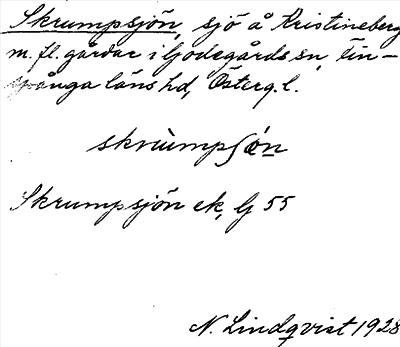 Skrumpsjön, sjö å Kristineberg
m. fl. gårdar i Godegårds sn, Fin-
spånga läns hd, Österg. l.
skrùmpʃœ́n
Skrumpsjön ek, G 55
N. Lindqvist 1928